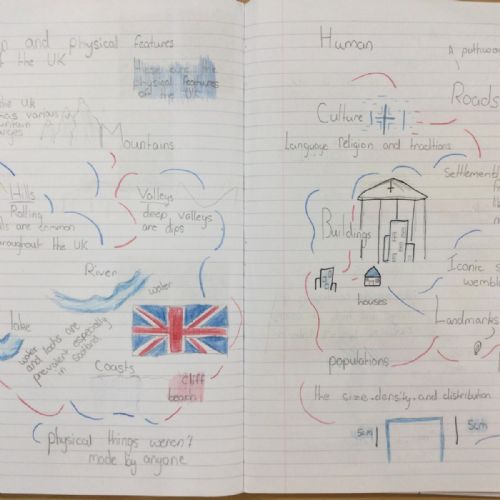 and physical features
of the UK
these are the
physical features
of the UK
the UK
has various
mountain
ranges
Mountains
Hills
Rolling
are common
throughout the UK
Valleys
deep valleys
are dips
River
water
lake
water
and lochs are
prevalent especially
in Scotland
Coasts
cliff
beach
physical things weren't
made by anyone
Human
A pathway
Roads
Culture
Language religion and traditions
Settlements
Buildings
houses
Iconic s
wemble
Landmarks
populations
the size, density, and distribution
5cm
5cm